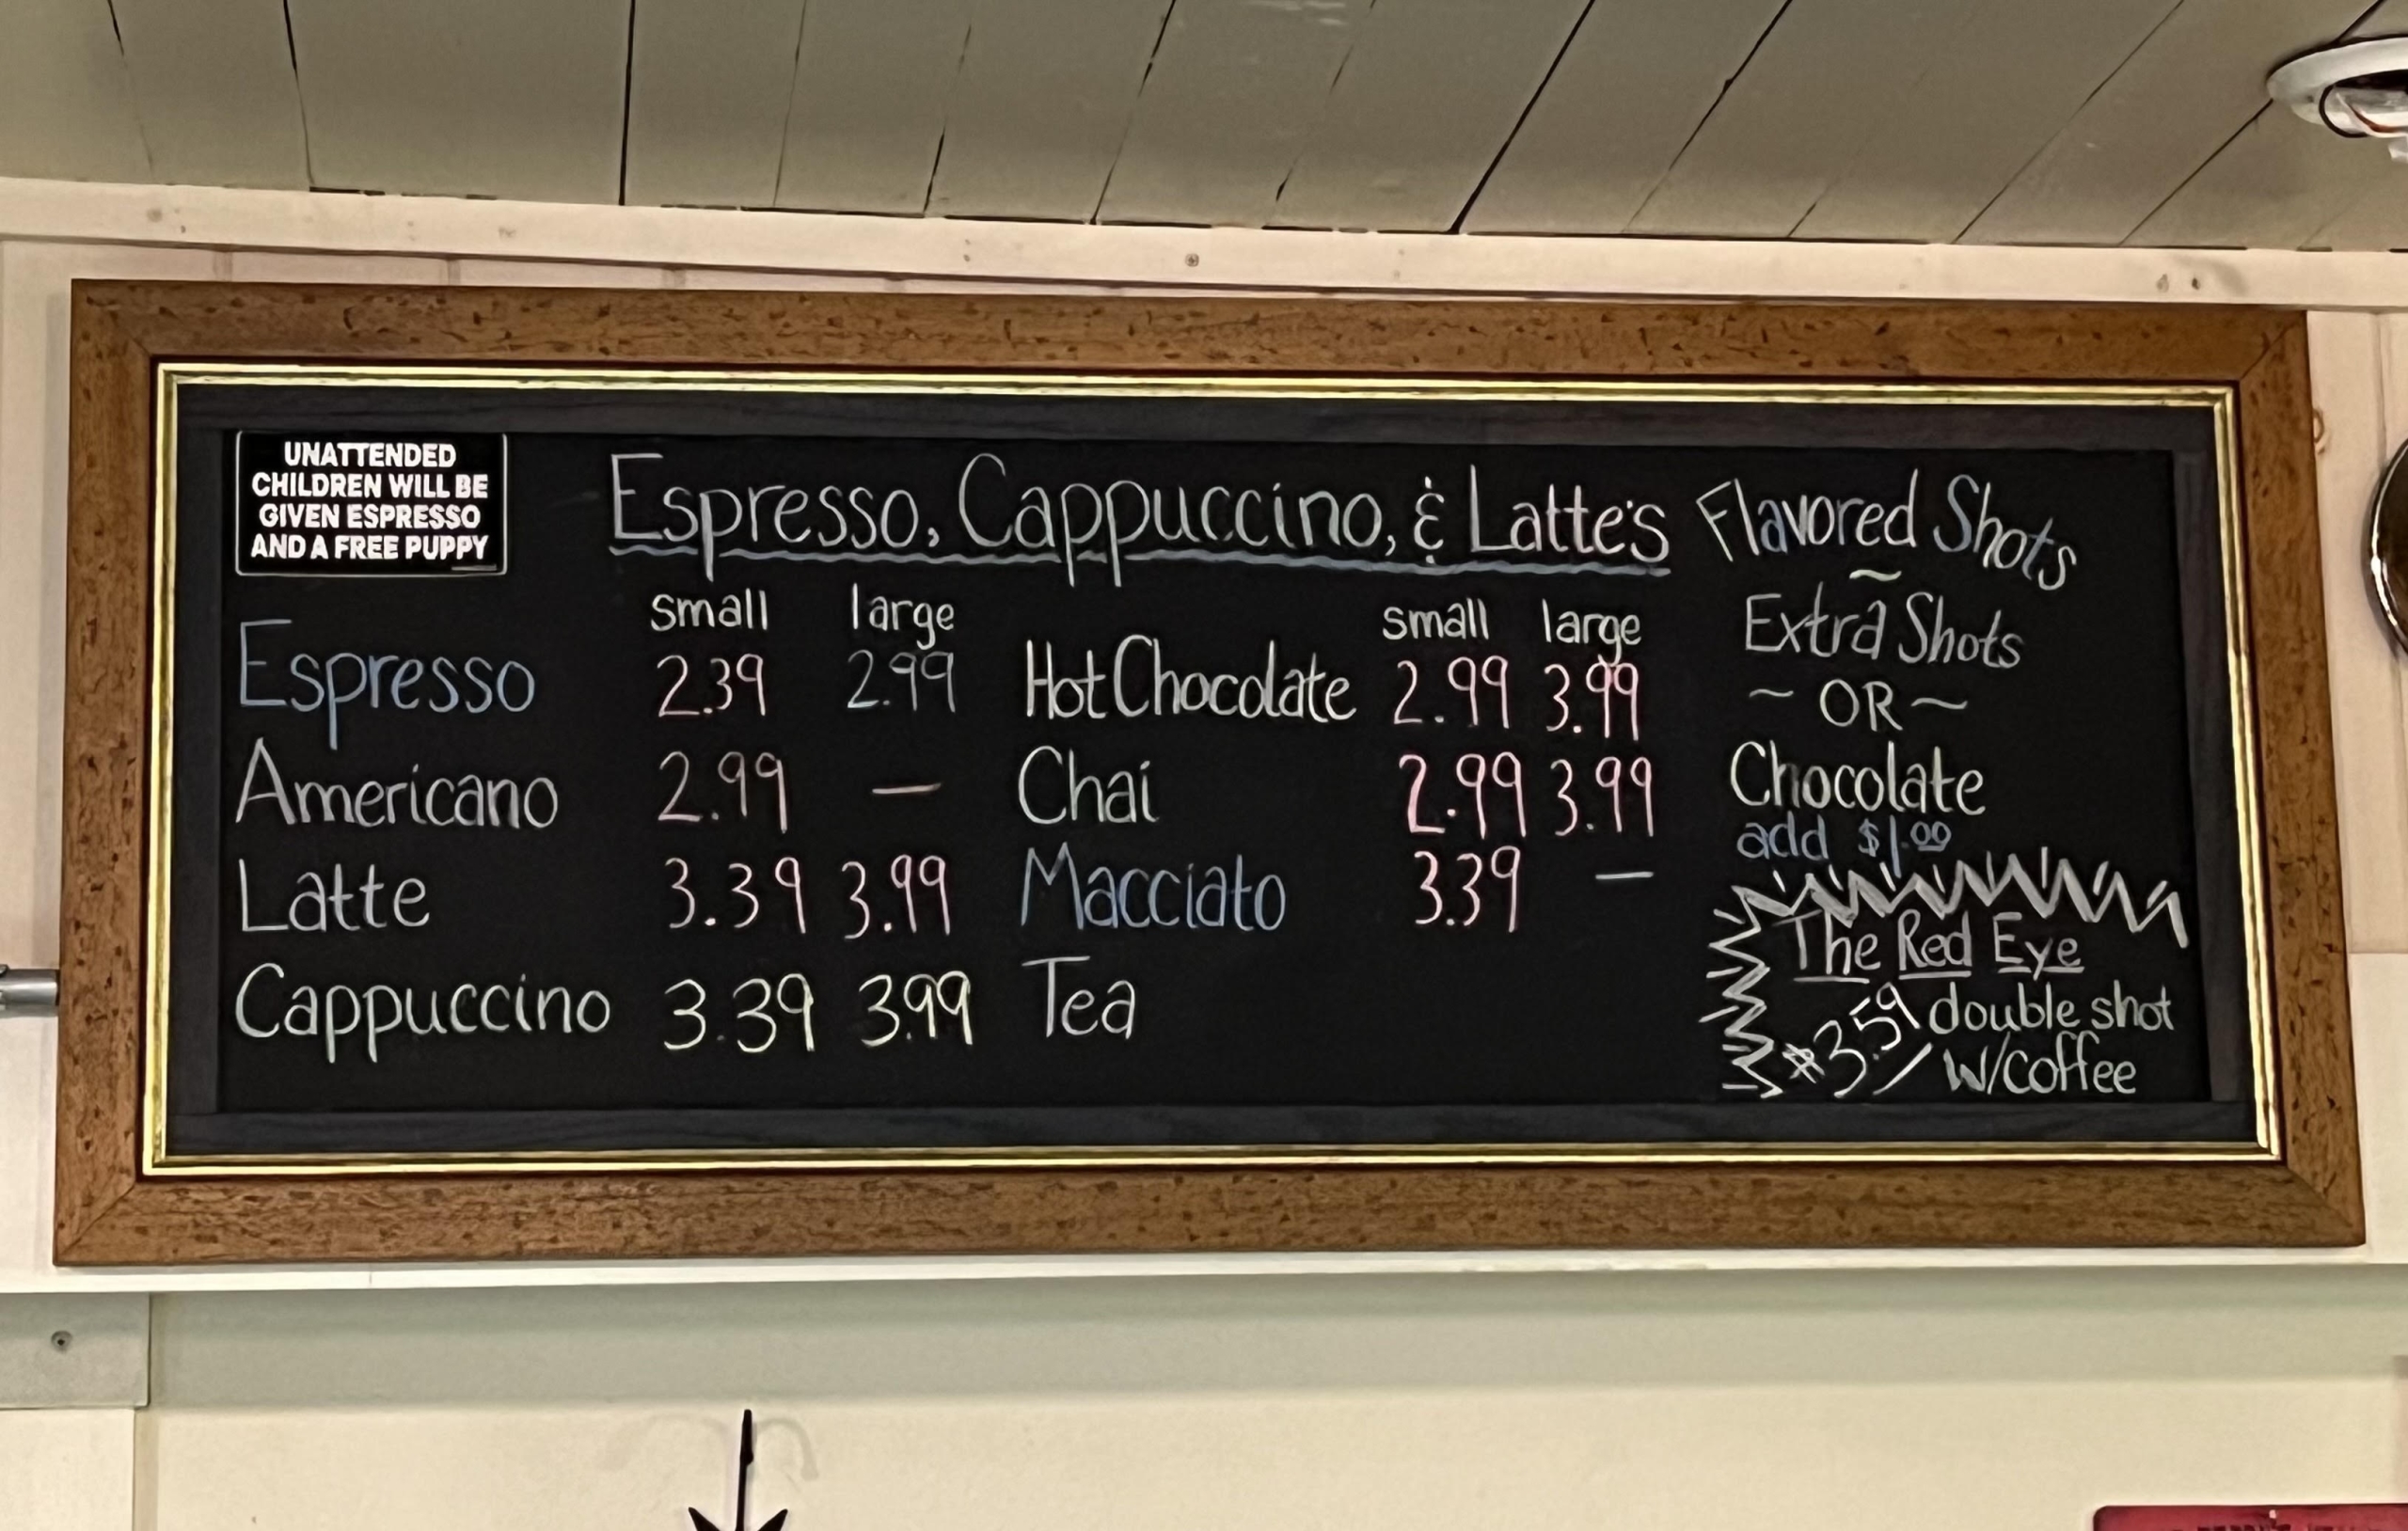 UNATTENDED
CHILDREN WILL BE
GIVEN ESPRESSO
AND A FREE PUPPY
Espresso, Cappuccino, & Latte's
small large
Espresso 2.39 2.99
Americano 2.99 —
Latte 3.39 3.99
Cappuccino 3.39 3.99
small large
Hot Chocolate 2.99 3.99
Chai 2.99 3.99
Macciato 3.39 —
Tea
Flavored Shots
~
Extra Shots
~ OR ~
Chocolate
add $1.00
The Red Eye
$3.59 double shot
w/coffee